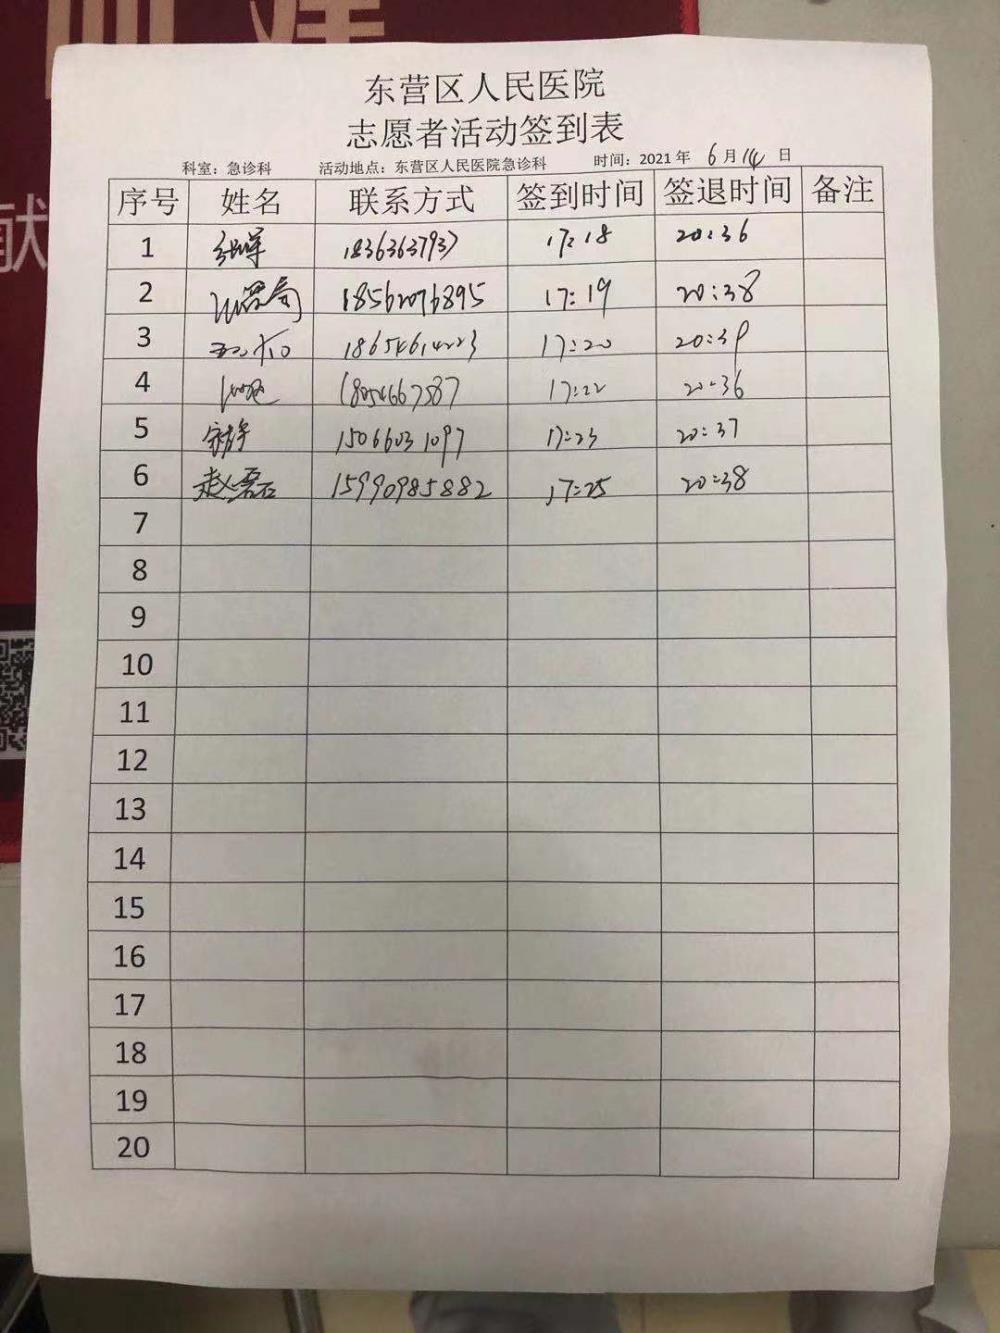 献
东营区人民医院
志愿者活动签到表
科室：急诊科 活动地点：东营区人民医院急诊科 时间：2021年 6月14日
序号 姓名 联系方式 签到时间 签退时间 备注
1 17:18 20:36
2 18562076895 17:19 20:38
3 17:20 20:39
4 17:22 20:36
5 15066031097 17:23 20:37
6 赵磊 15990985882 17:25 20:38
7
8
9
10
11
12
13
14
15
16
17
18
19
20